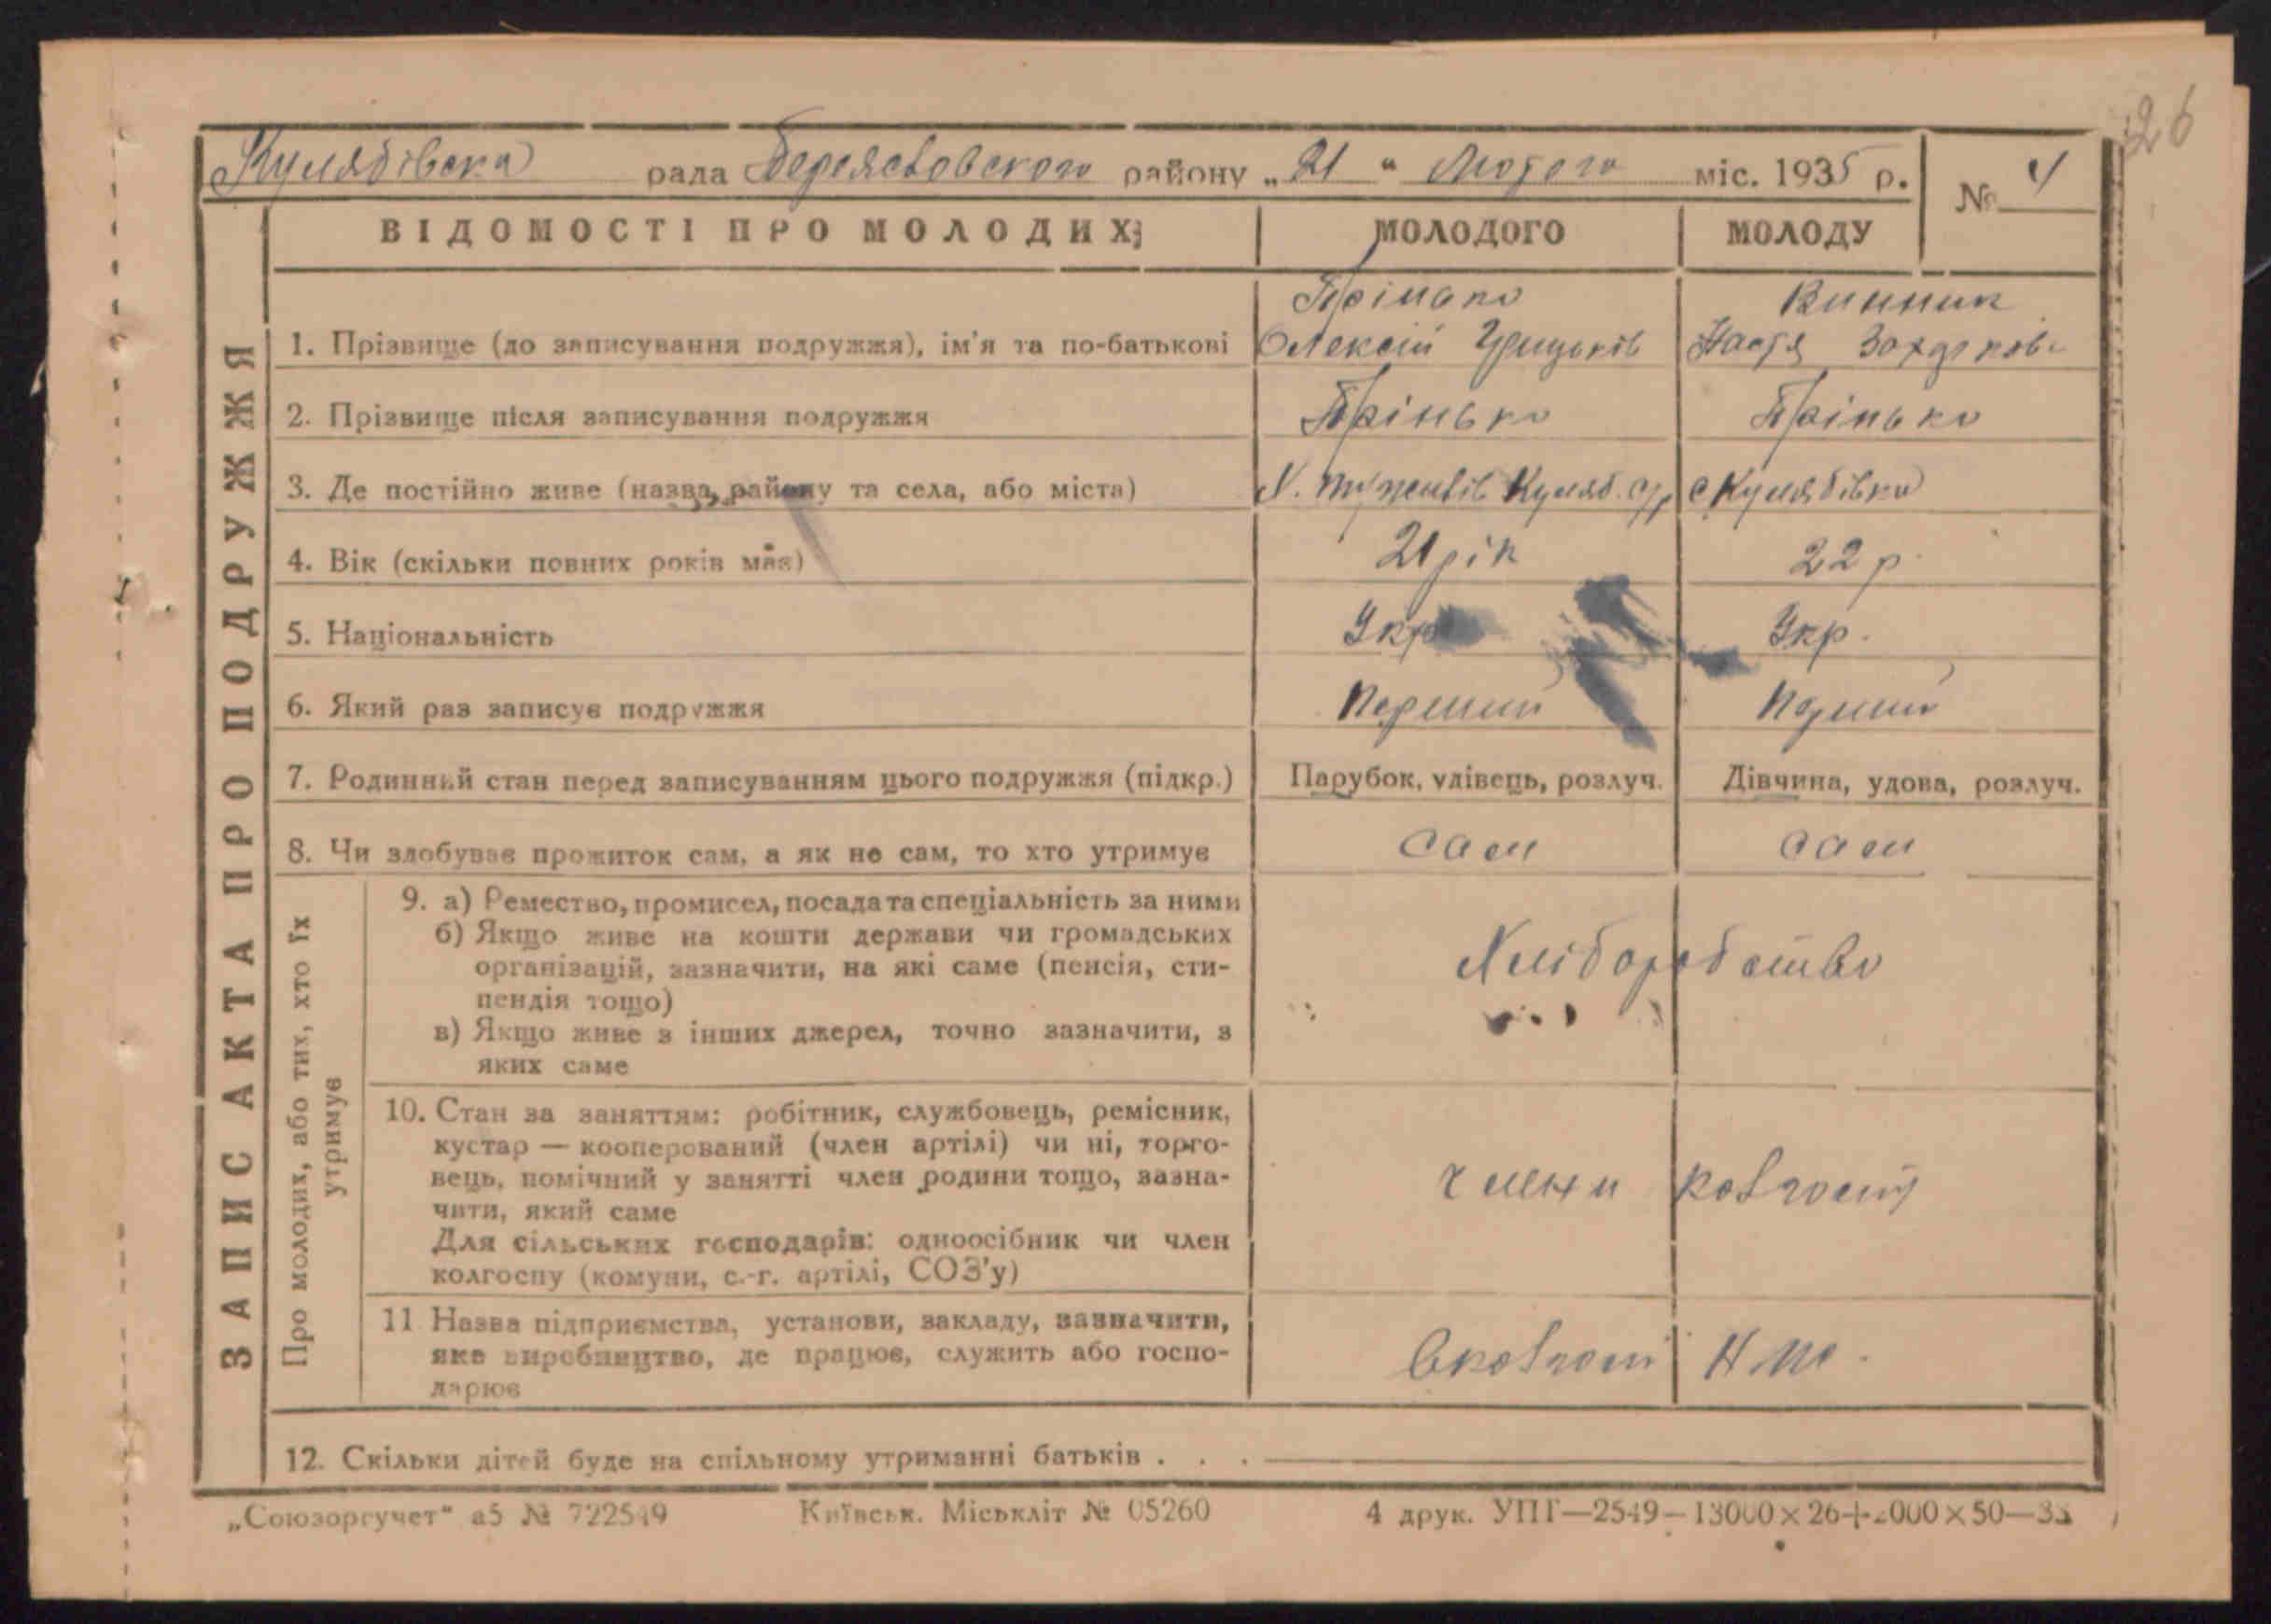 26
Кулябівска рада Березанського району „21“ Лютого міс. 1935 р. № 4
ВІДОМОСТІ ПРО МОЛОДИХ: МОЛОДОГО МОЛОДУ
Винник
1. Прізвище (до записування подружжя), ім'я та по-батькові Олексій Грицьків Настя
2. Прізвище після записування подружжя Прінько Прінько
3. Де постійно живе (назва, району та села, або міста) Х. Куляб. с/р с Кулябівка
4. Вік (скільки повних років має) 21 рік 22 р.
5. Національність Укр Укр.
6. Який раз записує подружжя Перший Перший
7. Родинний стан перед записуванням цього подружжя (підкр.) Парубок, удівець, розлуч. Дівчина, удова, розлуч.
8. Чи здобуває прожиток сам, а як не сам, то хто утримує сам сам
ЗАПИС АКТА ПРО ПОДРУЖЖЯ
Про молодих, або тих, хто їх
утримує
9. а) Ремество, промисел, посада та спеціальність за ними
б) Якщо живе на кошти держави чи громадських
організацій, зазначити, на які саме (пенсія, сти-
пендія тощо)
Хліборобство
в) Якщо живе з інших джерел, точно зазначити, з
яких саме
10. Стан за заняттям: робітник, службовець, ремісник,
кустар — кооперований (член артілі) чи ні, торго-
вець, помічний у занятті член родини тощо, зазна-
чити, який саме
Для сільських господарів: одноосібник чи член
колгоспу (комуни, с.-г. артілі, СОЗ'у)
члени колгоспу
11 Назва підприємства, установи, закладу, зазначити,
яке виробництво, де працює, служить або госпо-
дарює
В колгоспі
12. Скільки дітей буде на спільному утриманні батьків . . .
„Союзоргучет“ а5 № 722549 Київськ. Міськліт № 05260 4 друк. УПГ—2549—13000×26+2000×50—33